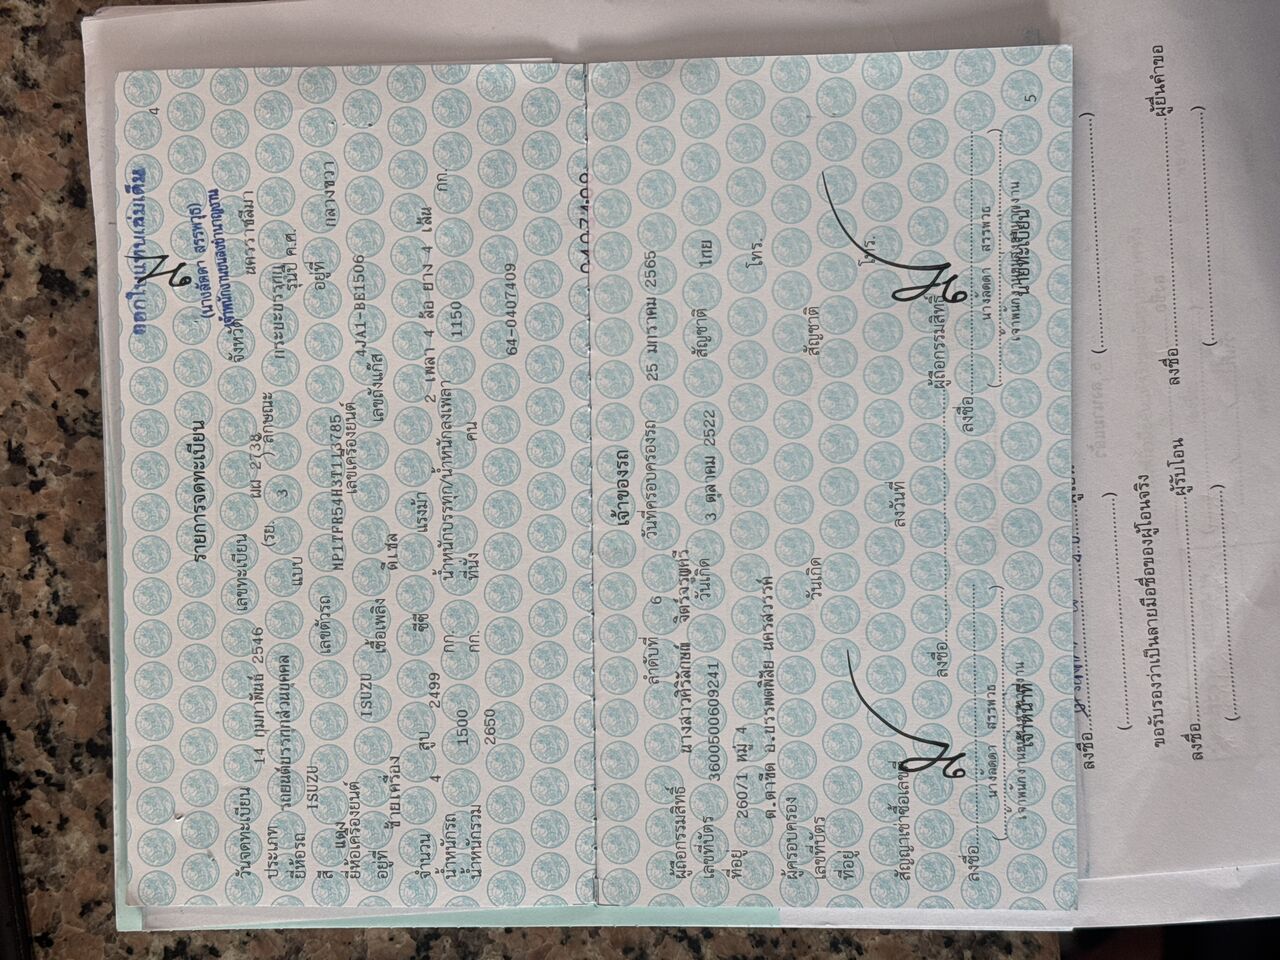 4
ออกใบแทนเล่มเดิม
(นางลัดดา สรรพวุธ)
เจ้าพนักงานขนส่งชำนาญงาน
รายการจดทะเบียน
วันจดทะเบียน 14 กุมภาพันธ์ 2546 เลขทะเบียน ผผ 2738 จังหวัด นครราชสีมา
ประเภท รถยนต์บรรทุกส่วนบุคคล (รย. 3 ) ลักษณะ กระบะบรรทุก
ยี่ห้อรถ ISUZU แบบ รุ่นปี ค.ศ.
สี แดง เลขตัวรถ MP1TFR54H3T113785 อยู่ที่ กลางขวา
ยี่ห้อเครื่องยนต์ ISUZU เลขเครื่องยนต์ 4JA1-BE1506
อยู่ที่ ซ้ายเครื่อง เชื้อเพลิง ดีเซล เลขถังแก๊ส
จำนวน 4 สูบ 2499 ซีซี แรงม้า 2 เพลา 4 ล้อ ยาง 4 เส้น
น้ำหนักรถ 1500 กก. น้ำหนักบรรทุก/น้ำหนักลงเพลา 1150 กก.
น้ำหนักรวม 2650 กก. ที่นั่ง คน
64-0407409
เจ้าของรถ
ลำดับที่ 6 วันที่ครอบครองรถ 25 มกราคม 2565
ผู้ถือกรรมสิทธิ์ นางสาววิริลักษณ์ จิตร์จรูญศรี สัญชาติ ไทย
เลขที่บัตร 3600500609241 วันเกิด 3 ตุลาคม 2522
ที่อยู่ 260/1 หมู่ 4 โทร.
ต.ตาขีด อ.บรรพตพิสัย นครสวรรค์
ผู้ครอบครอง
เลขที่บัตร วันเกิด สัญชาติ
ที่อยู่ โทร.
สัญญาเช่าซื้อเลขที่ ลงวันที่
ลงชื่อ ผู้ถือกรรมสิทธิ์
ลงชื่อ ลงชื่อ
นางลัดดา สรรพวุธ นางลัดดา สรรพวุธ
เจ้าหน้าที่ นายทะเบียน
5
ลงชื่อ
ขอรับรองว่าเป็นลายมือชื่อของผู้โอนจริง
ลงชื่อ ผู้รับโอน ลงชื่อ ผู้ยื่นคำขอ